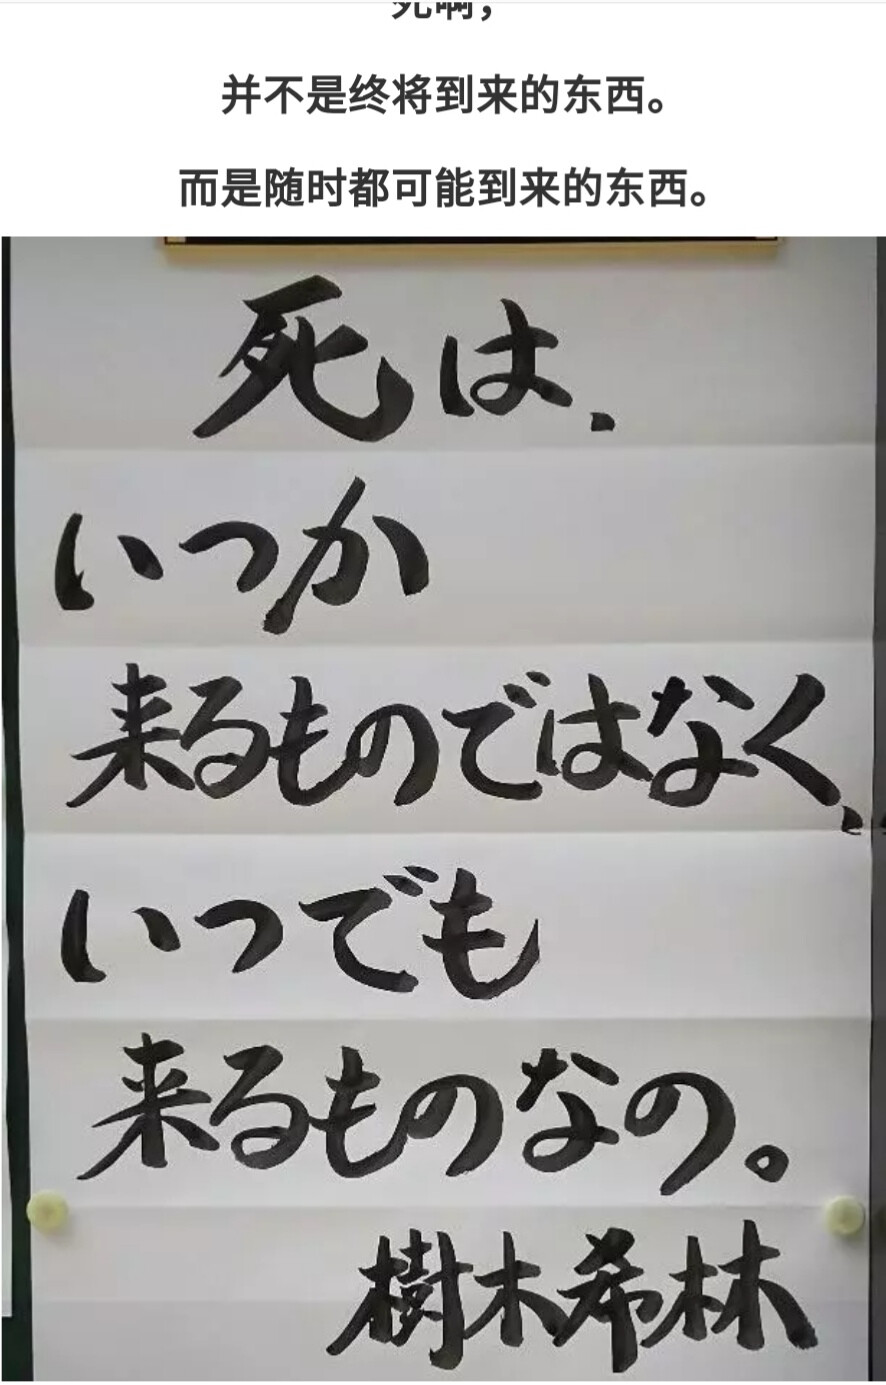 死啊，
并不是终将到来的东西。
而是随时都可能到来的东西。
死は、
いつか
来るものではなく、
いつでも
来るものなの。
樹木希林